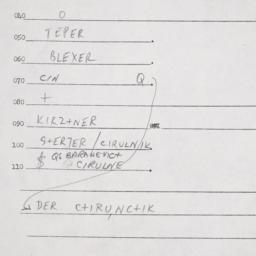 040 O
050 TEPER
060 BLEXER
070 C/N Q
080 +
090 KIRZ+NER
100 S+ER7ER / CIRULNIK
$ QS BARAKEVIC+
110 $ CIRULNE
DER C+IRU,NC+IK